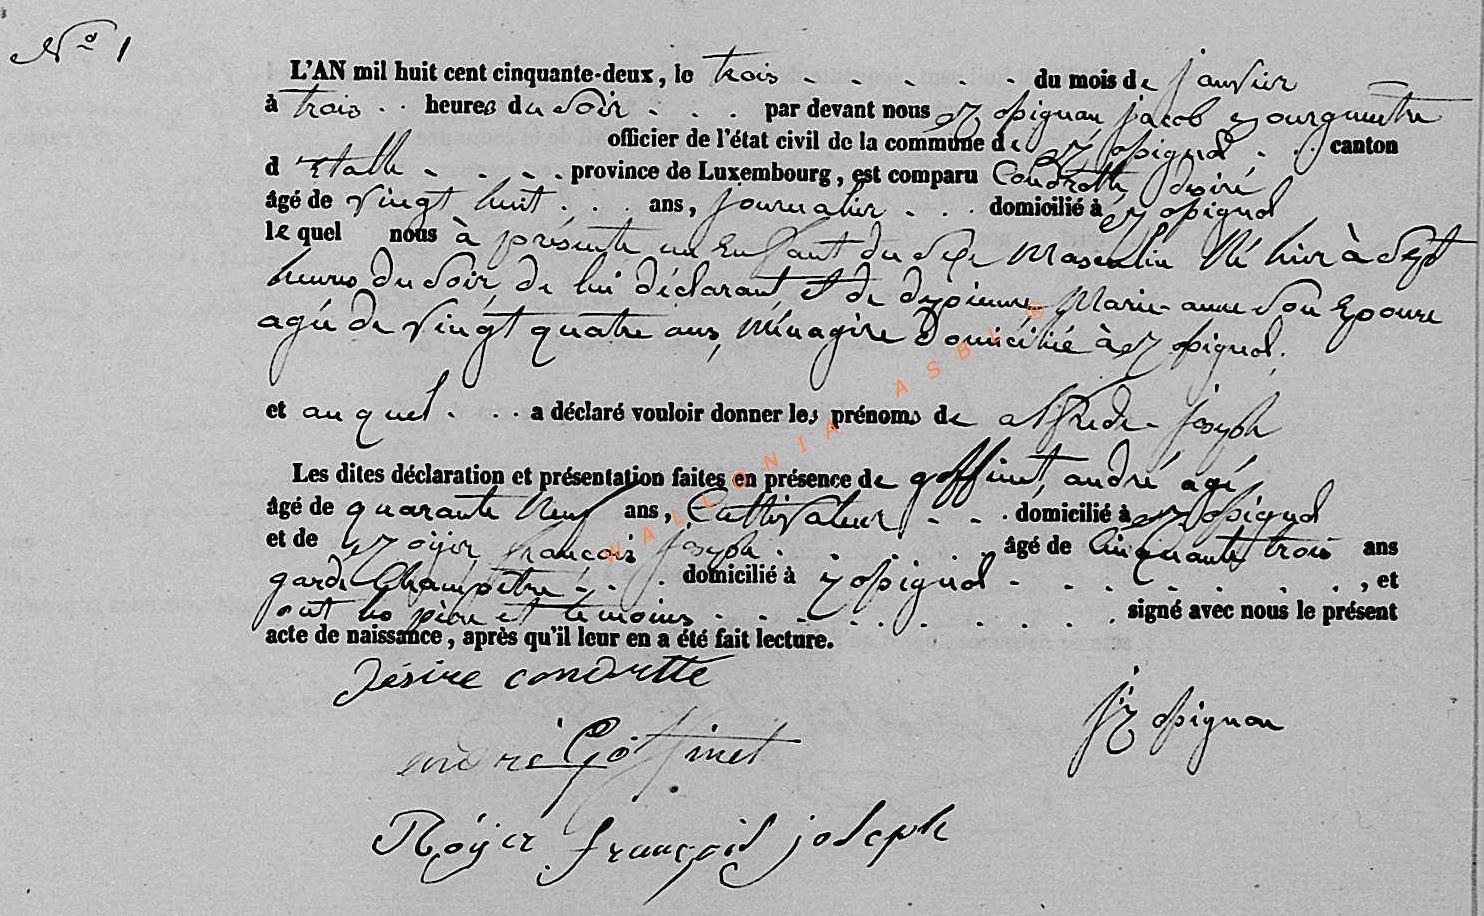 N° 1
L'AN mil huit cent cinquante-deux, le trois - - - - - du mois de janvier
à trois - - heures du soir - - - par devant nous Rossignon jacob Bourgmestre
officier de l'état civil de la commune de Rossignol - - canton
d'Etalle - - - - province de Luxembourg, est comparu Condrotte désiré
âgé de vingt huit - - - ans, journalier - - - domicilié à Rossignol
lequel nous à présenté un Enfant du sexe Masculin Né hier à sept
heures du soir, de lui déclarant, et de Marie-anne son Epouse
agée de vingt quatre ans, Ménagère Domicilié à Rossignol.
et auquel - - - a déclaré vouloir donner les prénoms de alfrede - joseph
Les dites déclaration et présentation faites en présence de goffinet, andré agé
âgé de quarante neuf ans, Cultivateur - - - domicilié à Rossignol
et de Rojer françois joseph - - - - - - âgé de Cinquante trois ans
garde Champêtre - - - domicilié à Rossignol - - - - - - -, et
ont les père et temoins - - - - - - - - - - signé avec nous le présent
acte de naissance, après qu'il leur en a été fait lecture.
Désiré condrotte
j Rossignon
andré Goffinet
Röyer françois joseph
WALLONIA ASBL ®